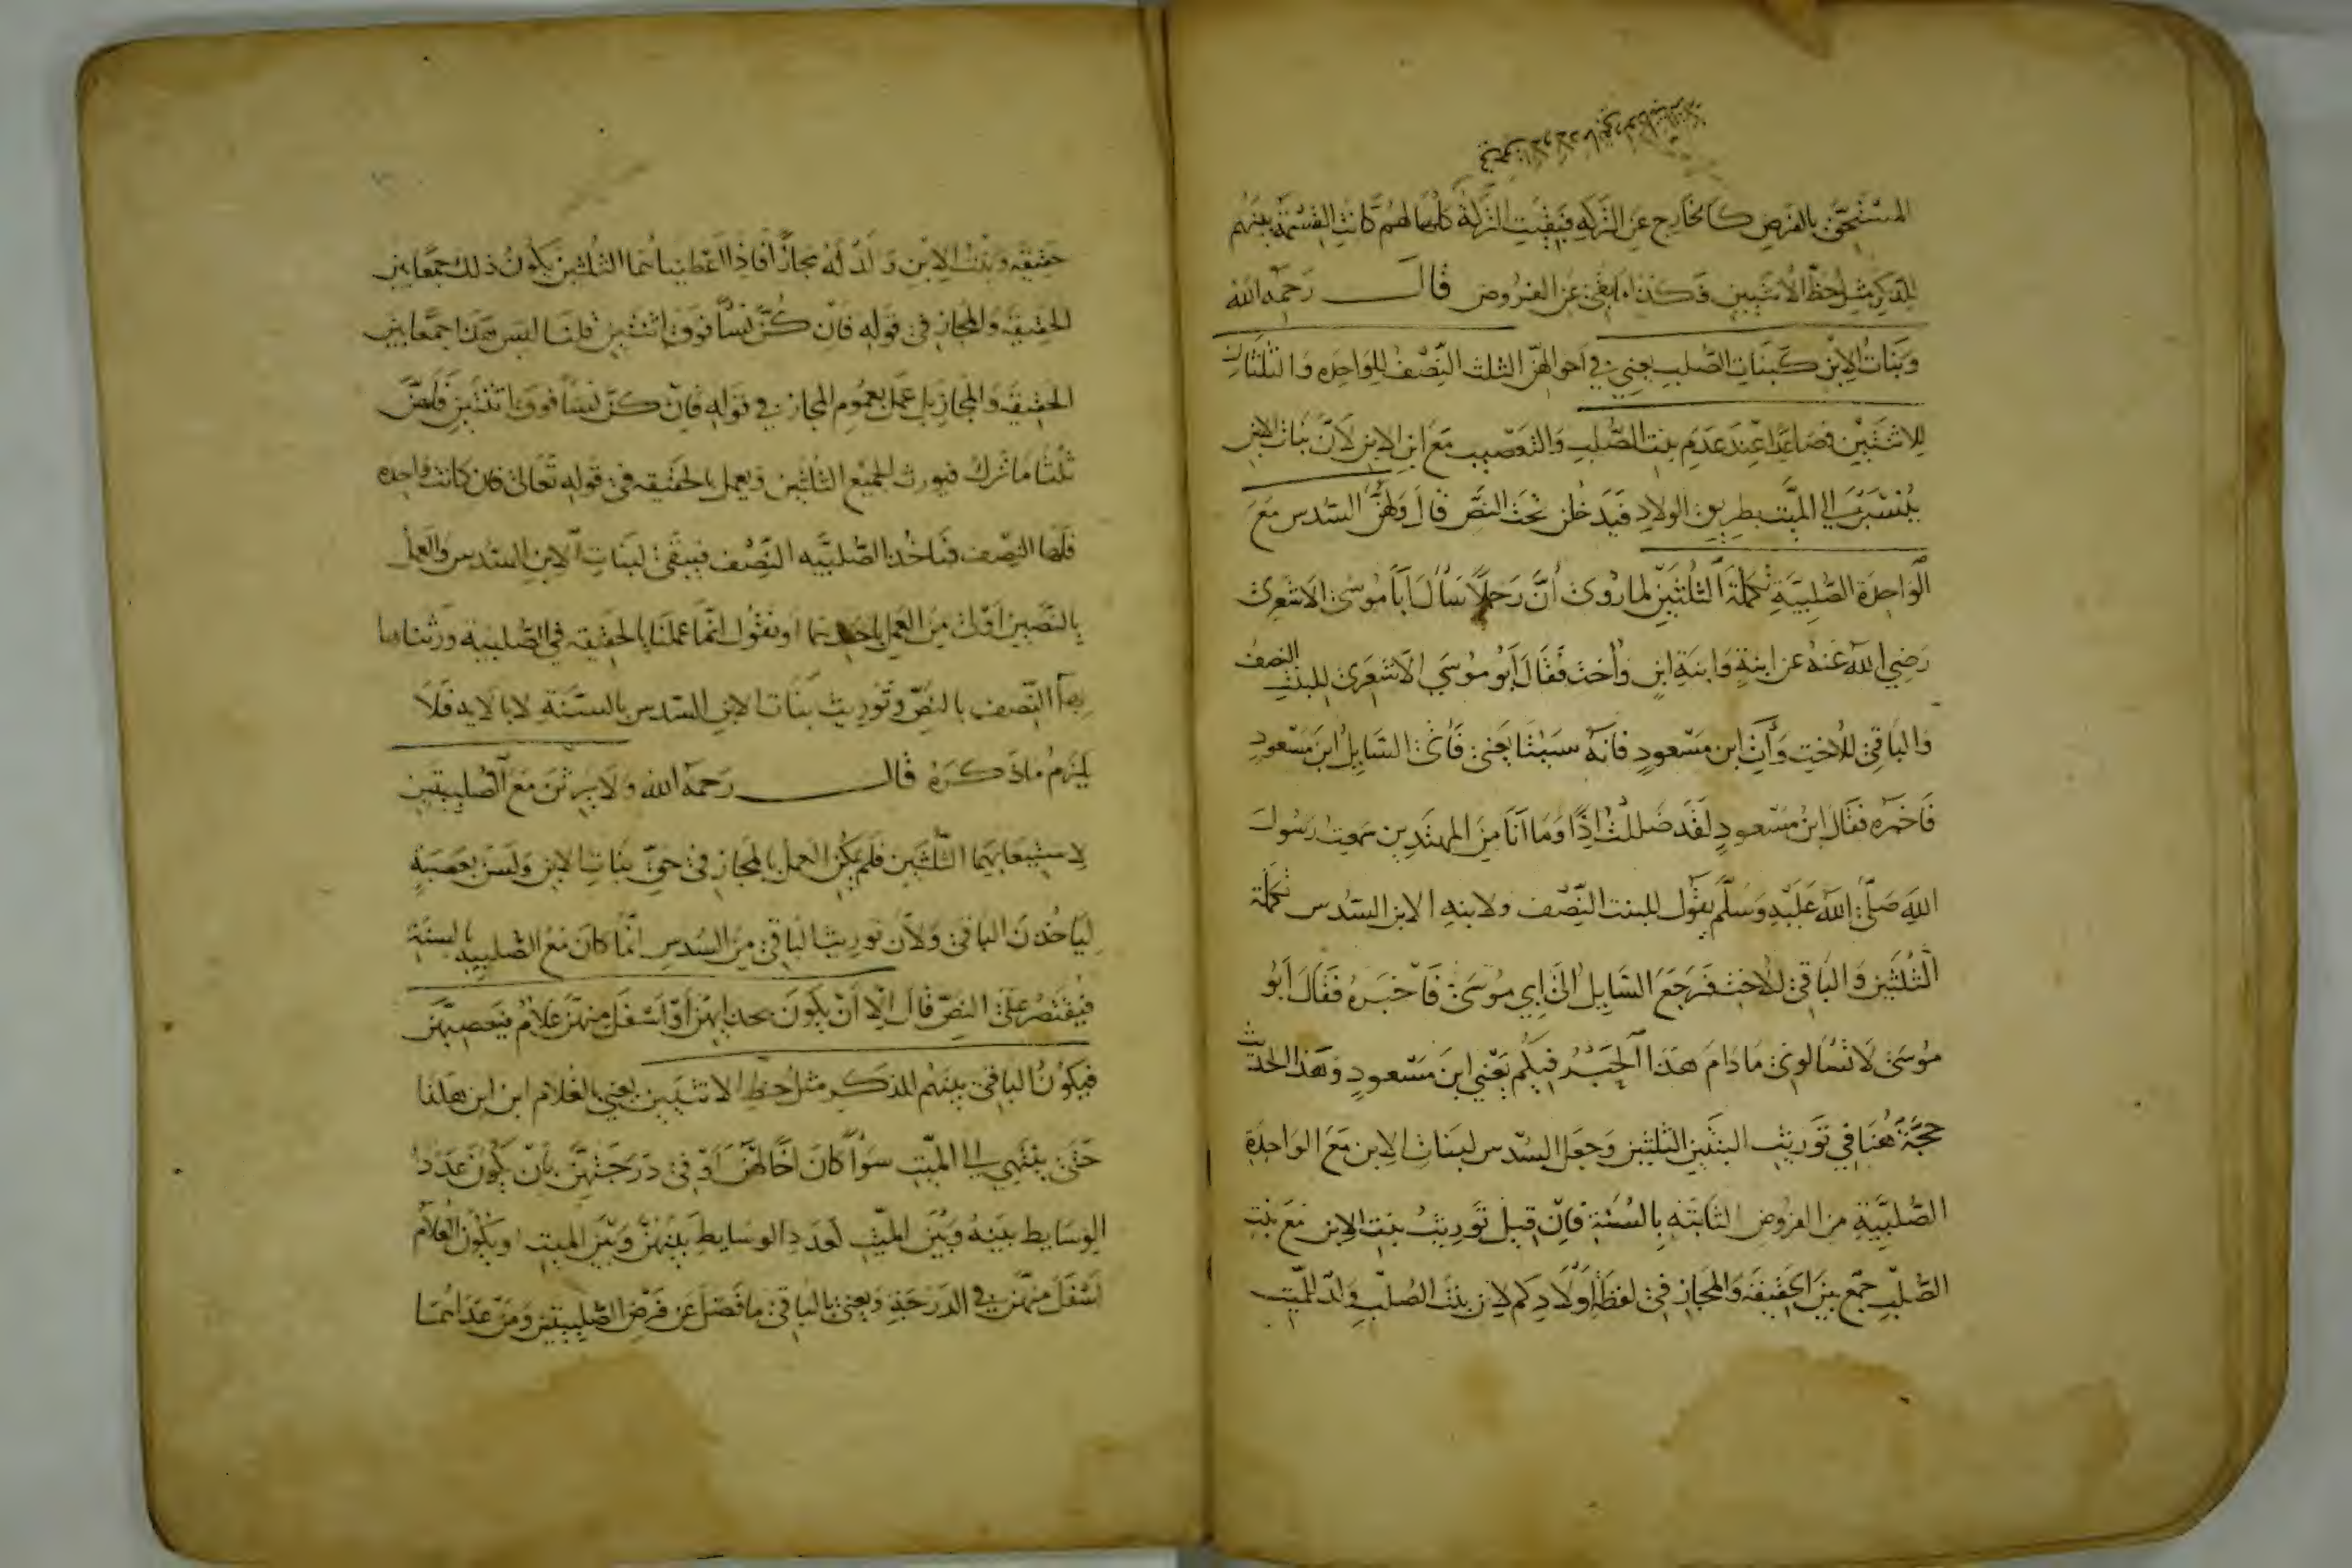 المستحق بالفرض كالخارج عن التركه فبقيت التركة كلها لهم كانت القسمة بينهم
للذكر مثل حظ الانثيين فكذا ما بقي عن الفروض قال رحمه الله
وبنات الابن كبنات الصلب يعني في احوالهن الثلث النصف للواحده والثلثان
للاثنتين فصاعدا عند عدم بنت الصلب والتعصيب مع ابن الابن لان بنات الابن
ينتسبن الي الميت بطريق الولاد فيدخلن تحت النص قال ولهن السدس مع
الواحدة الصلبية تكملة الثلثين لما روي أن رجلا سأل أبا موسى الاشعري
رضي الله عنه عن ابنة وابنة ابن وأخت فقال أبو موسي الاشعري للبنت النصف
والباقي للاخت وأت ابن مسعود فانه سيتابعني فأتى السايل ابن مسعود
فاخبره فقال ابن مسعود لقد ضللت إذا وما أنا من المهتدين سمعت رسول
الله صلى الله عليه وسلم يقول للبنت النصف ولابنه الابن السدس تكملة
الثلثين والباقي للاخت فرجع السايل الى ابي موسى فاخبره فقال أبو
موسى لا تسألوني ما دام هذا الحبر فيكم يعني ابن مسعود وهذا الحديث
حجة هنا في توريث البنتين الثلثين وجعل السدس لبنات الابن مع الواحدة
الصلبية من الفروض الثابته بالسنة فان قيل توريث بنت الابن مع بنت
الصلب جمع بين الحقيقة والمجاز في لفظة أولادكم لان بنت الصلب ولد للميت
حقيقه وبنت الابن ولد له مجازا فاذا اعطيناهما الثلثين يكون ذلك جمعا بين
الحقيقة والمجاز في قوله فان كن نسآ فوق اثنتين قلنا ليس هذا جمعا بين
الحقيقة والمجاز بل عمل بعموم المجاز في قوله فان كن نسآ فوق اثنتين فلهن
ثلثا ما ترك فيورث الجميع الثلثين ويعمل بالحقيقه في قوله تعالى فان كانت واحده
فلها النصف فتاخذ الصلبيه النصف فيبقى لبنات الابن السدس والعمل
بالنصين اولى من العمل باحديهما او نقول انما عملنا بالحقيقه في الصلبية ورثناها
النصف بالنص وتوريث بنات الابن السدس بالسنة لا بالايه فلا
يلزم ما ذكره قال رحمه الله ولا يرثن مع الصلبيتين
لاستيعابهما الثلثين فلم يكن العمل بالمجاز في حق بنات الابن ولسن بعصبة
لياخذن الباقي ولان توريث الباقي من السدس انما كان مع الصلبيه بالسنة
فيقتصر على النص قال الا أن يكون بحذايهن أو اسفل منهن غلام فيعصبهن
فيكون الباقي بينهم للذكر مثل حظ الانثيين يعني بالغلام ابن ابن هكذا
حتى ينتهي الي الميت سوآ كان أخا لهن أو في درجتهن بان يكون عدد
الوسايط بينه وبين الميت كعدد الوسايط بينهن وبين الميت او يكون الغلام
اسفل منهن في الدرجة ويعني بالباقي ما فضل عن فرض الصلبيتين ومن عداهما